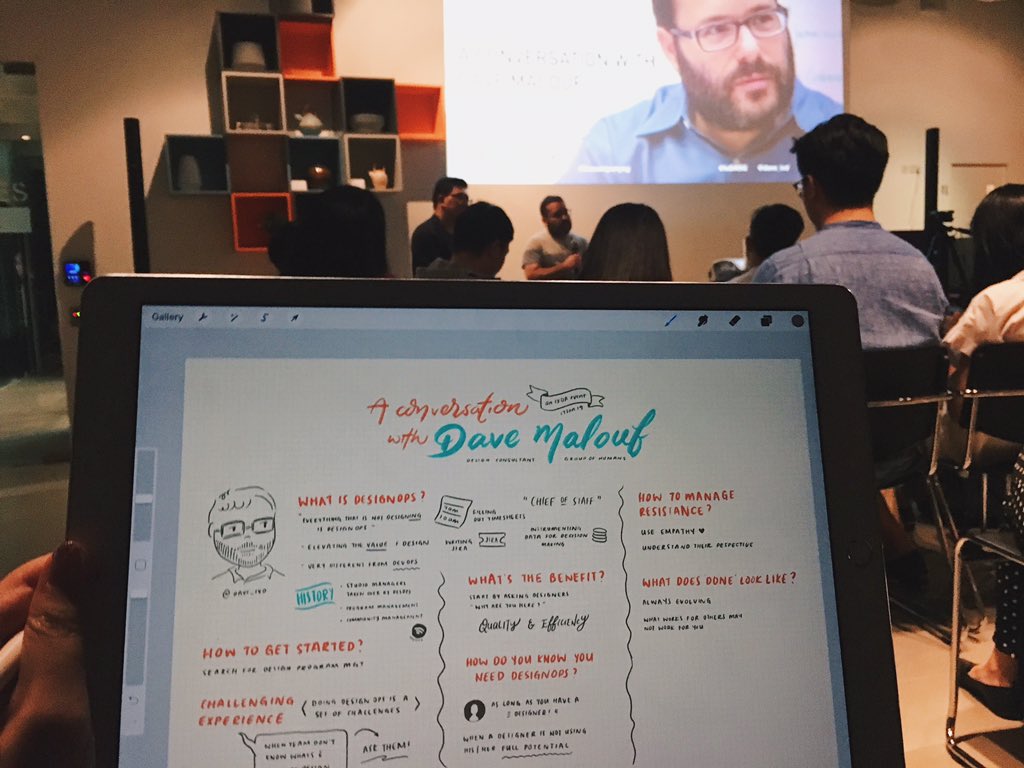 A CONVERSATION WITH
DAVE MALOUF
Gallery
A conversation
with Dave Malouf
DESIGN CONSULTANT
GROUP OF HUMANS
@DAVE_IXD
WHAT IS DESIGNOPS?
"EVERYTHING THAT IS NOT DESIGNING
IS DESIGN OPS"
- ELEVATING THE VALUE OF DESIGN
- VERY DIFFERENT FROM DEVOPS
HISTORY
- STUDIO MANAGERS
- PROGRAM MANAGEMENT
- COMMUNITY MANAGEMENT
HOW TO GET STARTED?
SEARCH FOR DESIGN PROGRAM MGT
CHALLENGING
EXPERIENCE
DOING DESIGN OPS IS A
SET OF CHALLENGES
WHEN TEAM DON'T
KNOW WHATS
ASK THEM!
FILLING
OUT TIMESHEETS
WRITING
JIRA
JIRA
"CHIEF OF STAFF"
INSTRUMENTING
DATA FOR DECISION
MAKING
WHAT'S THE BENEFIT?
START BY ASKING DESIGNERS
"WHY ARE YOU HERE?"
QUALITY & EFFICIENCY
HOW DO YOU KNOW YOU
NEED DESIGNOPS?
AS LONG AS YOU HAVE A
DESIGNER!
WHEN A DESIGNER IS NOT USING
HIS/HER FULL POTENTIAL
HOW TO MANAGE
RESISTANCE?
USE EMPATHY ♥
UNDERSTAND THEIR PESPECTIVE
WHAT DOES 'DONE' LOOK LIKE?
ALWAYS EVOLVING
WHAT WORKS FOR OTHERS MAY
NOT WORK FOR YOU